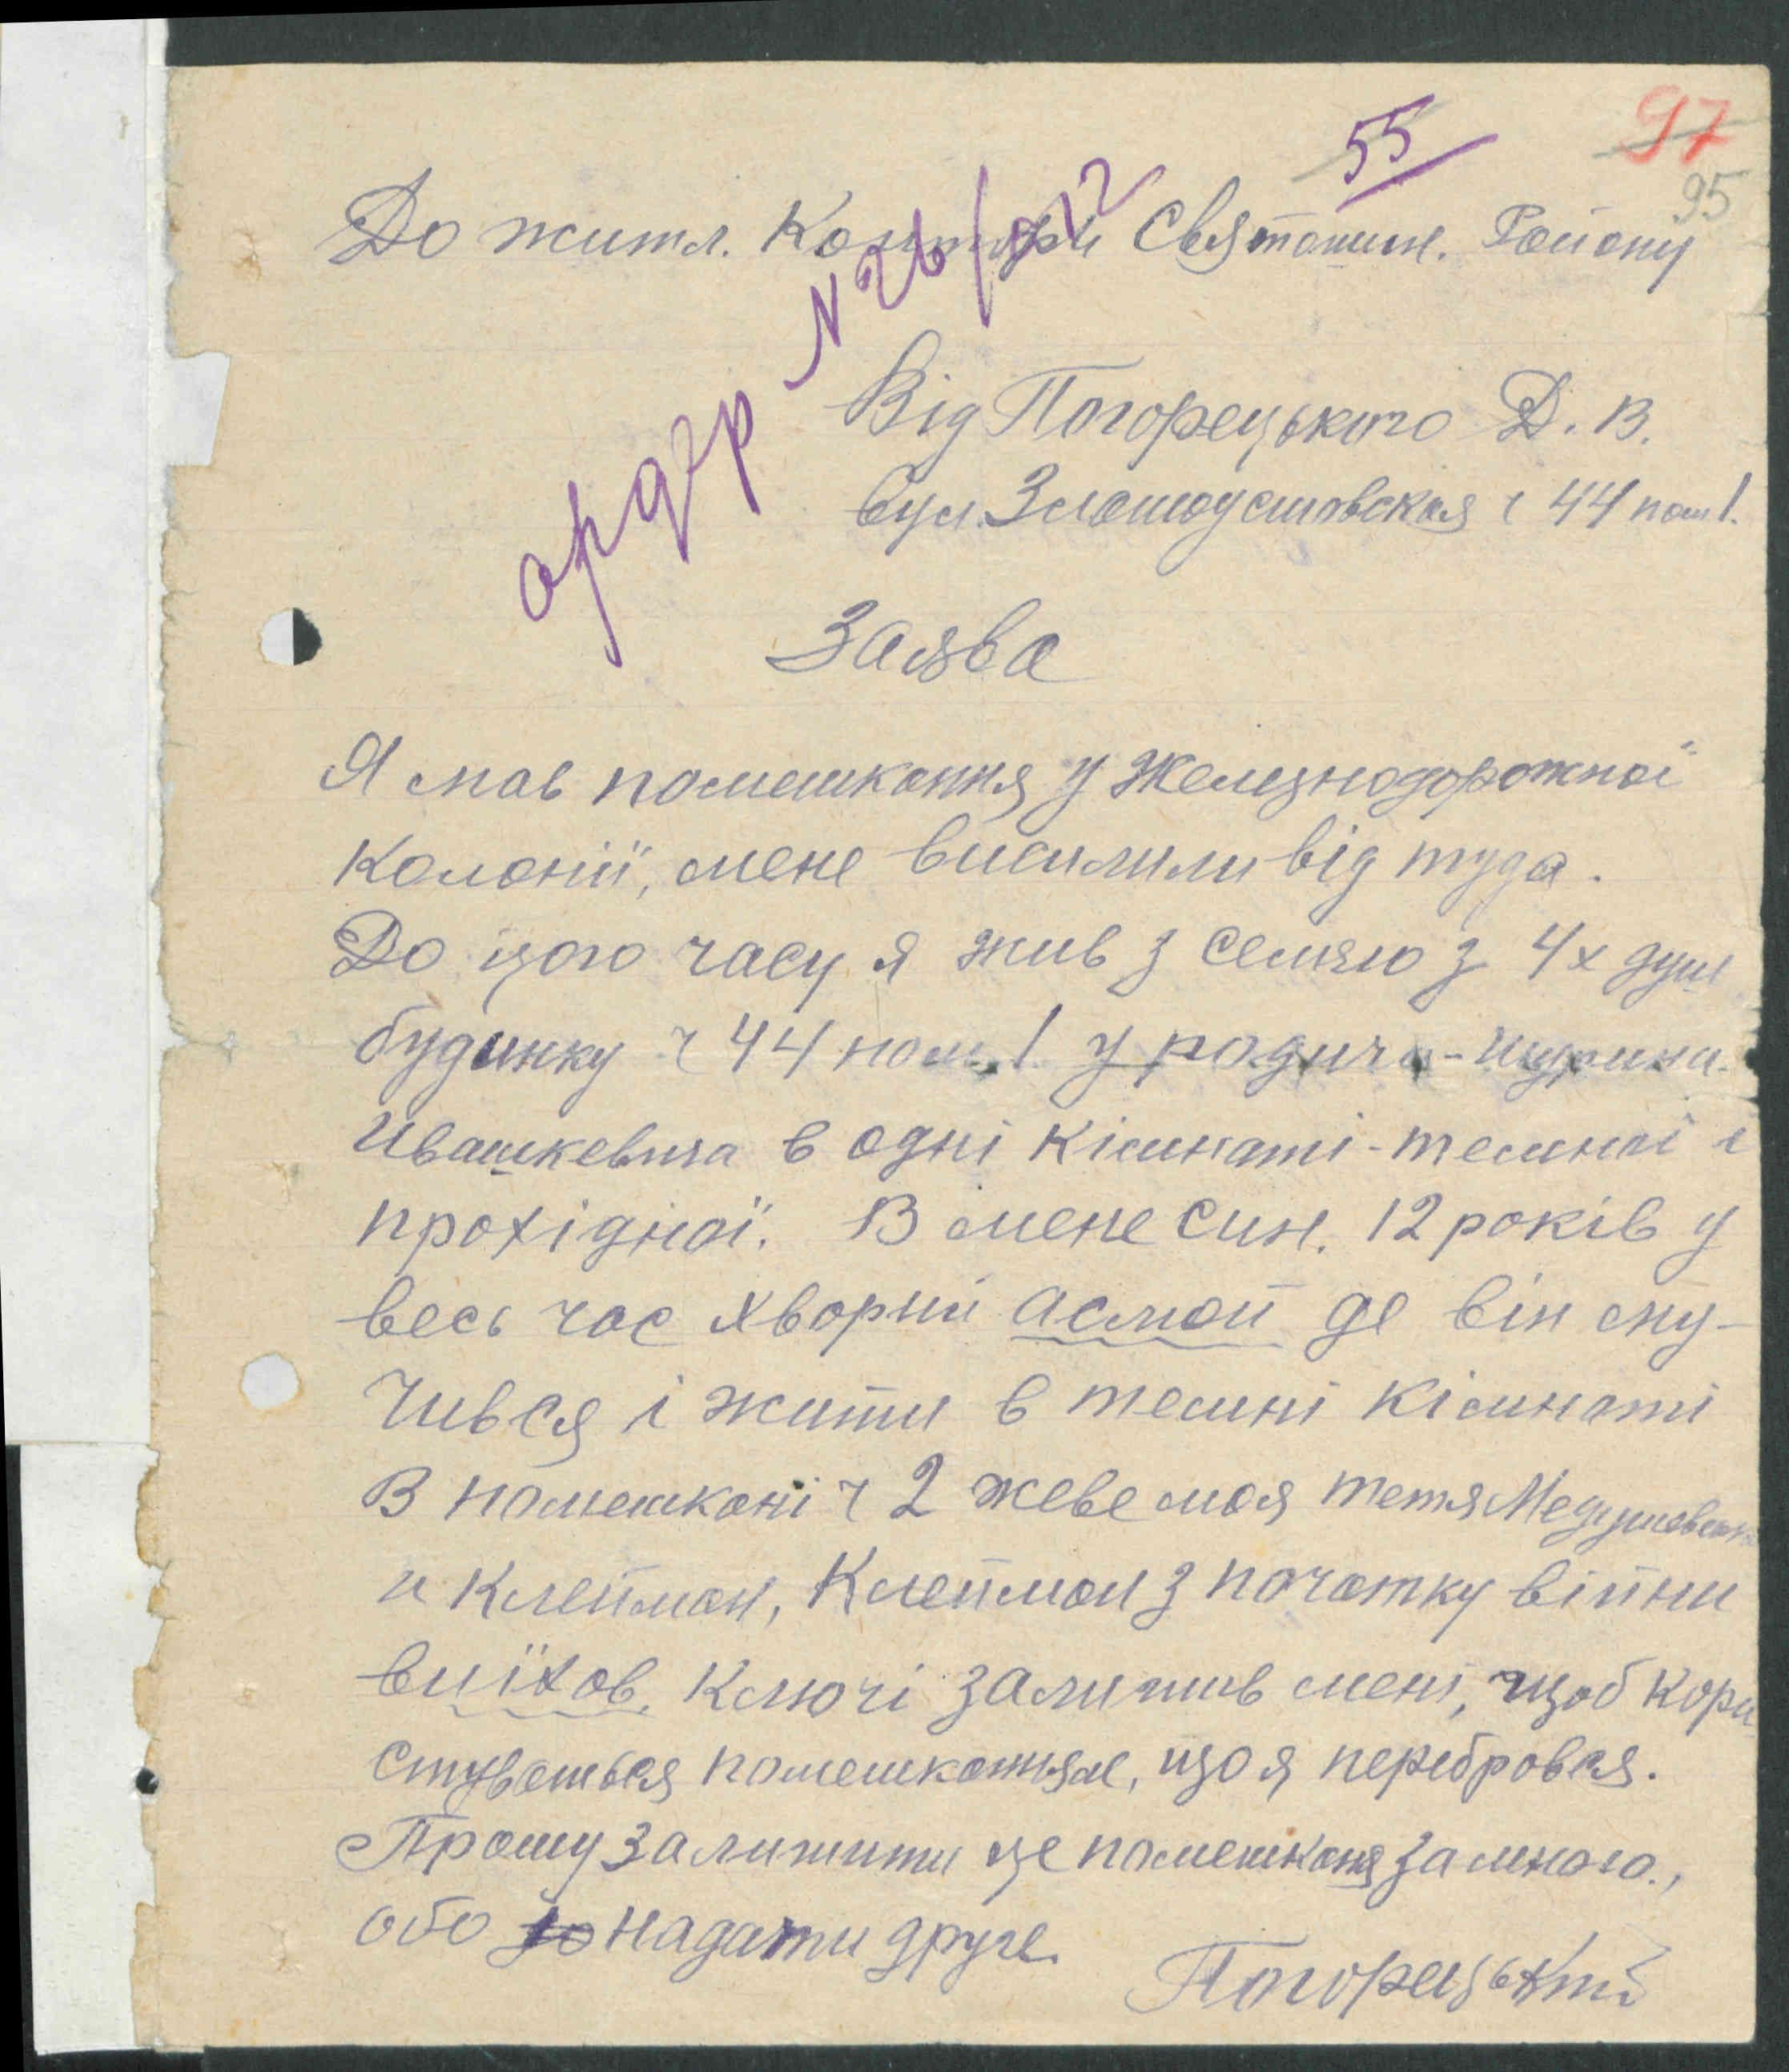 55
97
95
До житл. Контори Святошин. Району
ордер N 26/912
Від Погорецького Д. В.
вул. Златоустовская ч 44 пом 1.
Заява
Я мав помешкання у Железнодорожної
колонії, мене висилили від туда.
До цого часу я жив з семяю з 4х душ
будинку ч 44 пом. 1 у родича - шурина
Ивашкевича в одні кімнаті - темної і
прохідної. В мене син. 12 років у
весь час хворий асмой де він му-
чився і жити в темні кімнаті
В помешкані ч 2 жеве моя тетя
и Клейман, Клейман з початку війни
виїхав. Ключі залишив мені, щоб кори
стуваться помешканням, що я перебрався.
Прошу залишити це помешканя за мною.,
або надати друге.
Погорецький